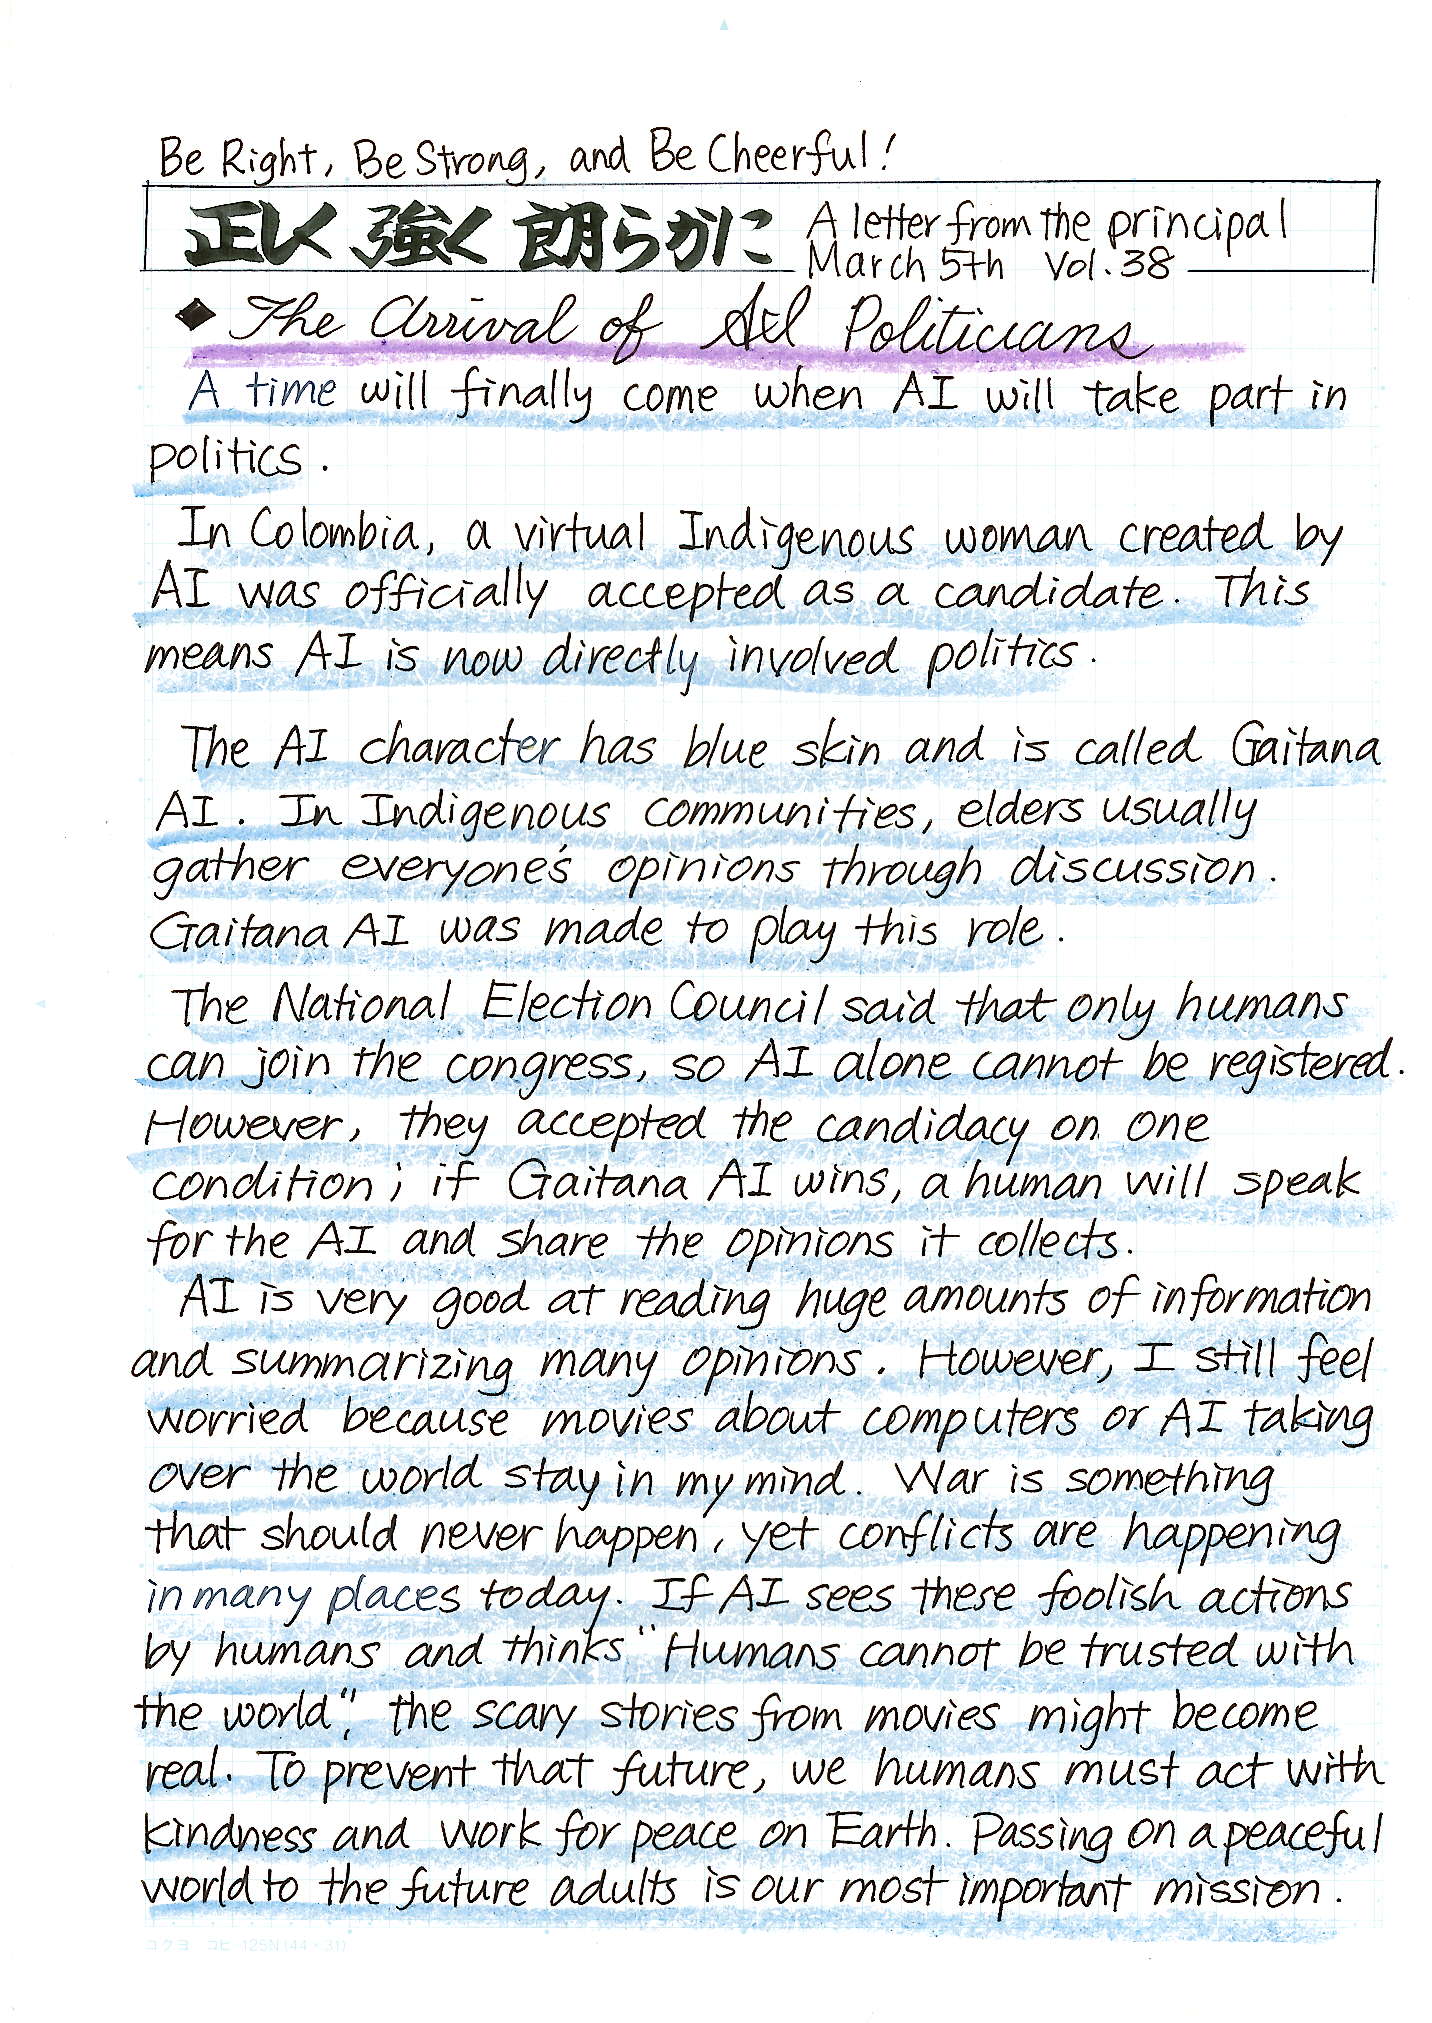 Be Right, Be Strong, and Be Cheerful!
正しく 強く 朗らかに
A letter from the principal
March 5th Vol.38
◆ The Arrival of AI Politicians
A time will finally come when AI will take part in
politics.
In Colombia, a virtual Indigenous woman created by
AI was officially accepted as a candidate. This
means AI is now directly involved politics.
The AI character has blue skin and is called Gaitana
AI. In Indigenous communities, elders usually
gather everyone's opinions through discussion.
Gaitana AI was made to play this role.
The National Election Council said that only humans
can join the congress, so AI alone cannot be registered.
However, they accepted the candidacy on one
condition; if Gaitana AI wins, a human will speak
for the AI and share the opinions it collects.
AI is very good at reading huge amounts of information
and summarizing many opinions. However, I still feel
worried because movies about computers or AI taking
over the world stay in my mind. War is something
that should never happen, yet conflicts are happening
in many places today. If AI sees these foolish actions
by humans and thinks "Humans cannot be trusted with
the world", the scary stories from movies might become
real. To prevent that future, we humans must act with
kindness and work for peace on Earth. Passing on a peaceful
world to the future adults is our most important mission.
コクヨ コヒ-125N(44×31)